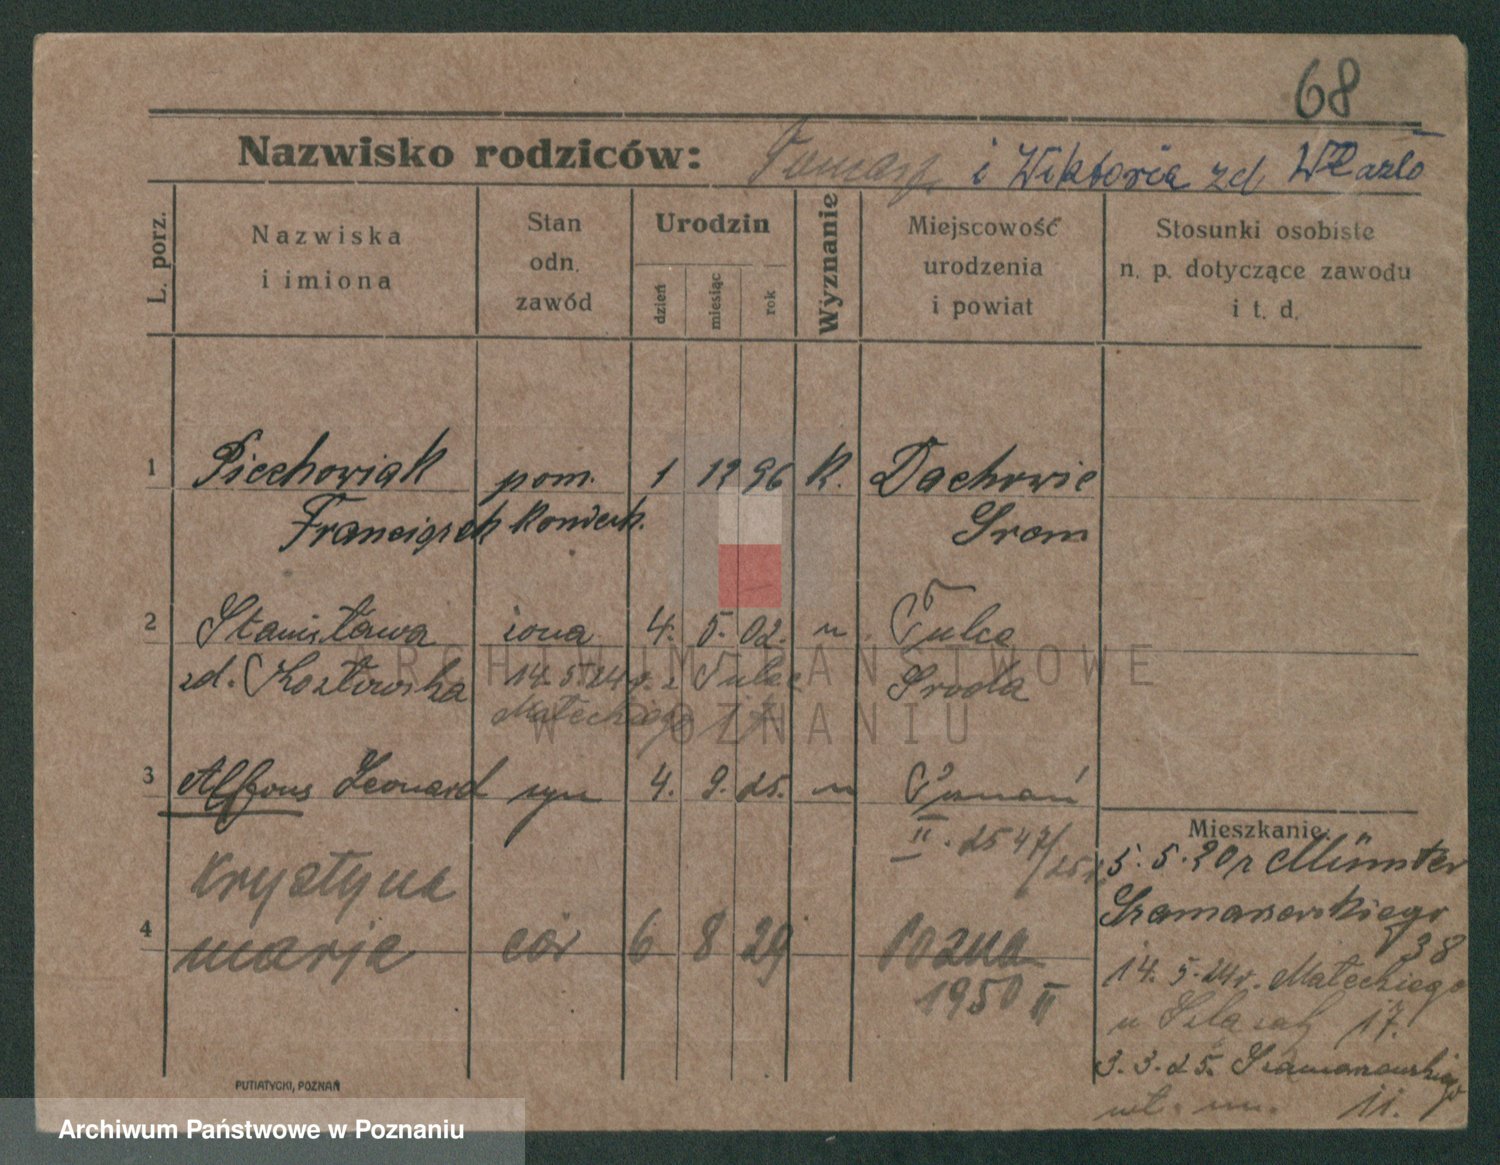 68
Nazwisko rodziców: Tomasz i Wiktoria zd.
L. porz.
Nazwiska i imiona
Stan odn. zawód
Urodzin
dzień miesiąc rok
Wyznanie
Miejscowość urodzenia i powiat
Stosunki osobiste n. p. dotyczące zawodu i t. d.
1 Piechowiak pom. 1 12 96 K. Dachowie
Franciszek Śrem
2 Stanisława żona 4. 5. 02. " Tulce
zd. Kozłowska 14.5.24 r. z Tulce Środa
Małeckiego 17
3 Alfons Leonard syn 4. 9. 25. " Poznań
II. 2547/25
Krystyna
4 Marja cór 6 8 29 Pozna
1950 II
Mieszkanie:
5.5.20 r Münster
Szamarzewskiego
38
14.5.24 r. Małeckiego
u 17.
3.3.25. Szamarzewskiego
11.
PUTIATYCKI, POZNAŃ
ARCHIWUM PAŃSTWOWE
W POZNANIU
Archiwum Państwowe w Poznaniu